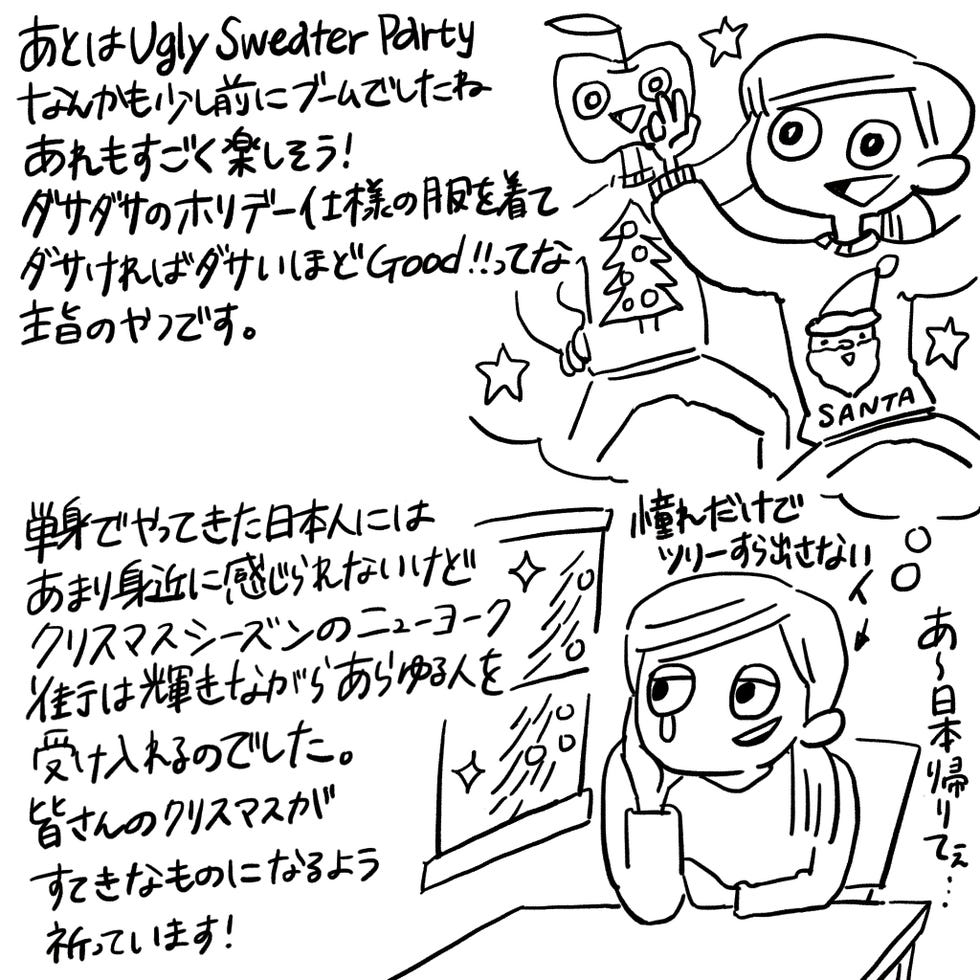 あとはUgly Sweater Party
なんかも少し前にブームでしたね
あれもすごく楽しそう!
ダサダサのホリデー仕様の服を着て
ダサければダサいほどGood!!ってな
主旨のやつです。
SANTA
単身でやってきた日本人には
あまり身近に感じられないけど
クリスマスシーズンのニューヨーク
街は輝きながらあらゆる人を
受け入れるのでした。
皆さんのクリスマスが
すてきなものになるよう
祈っています!
憧れだけで
ツリーすら出さない
人
あ〜日本帰りてぇ…